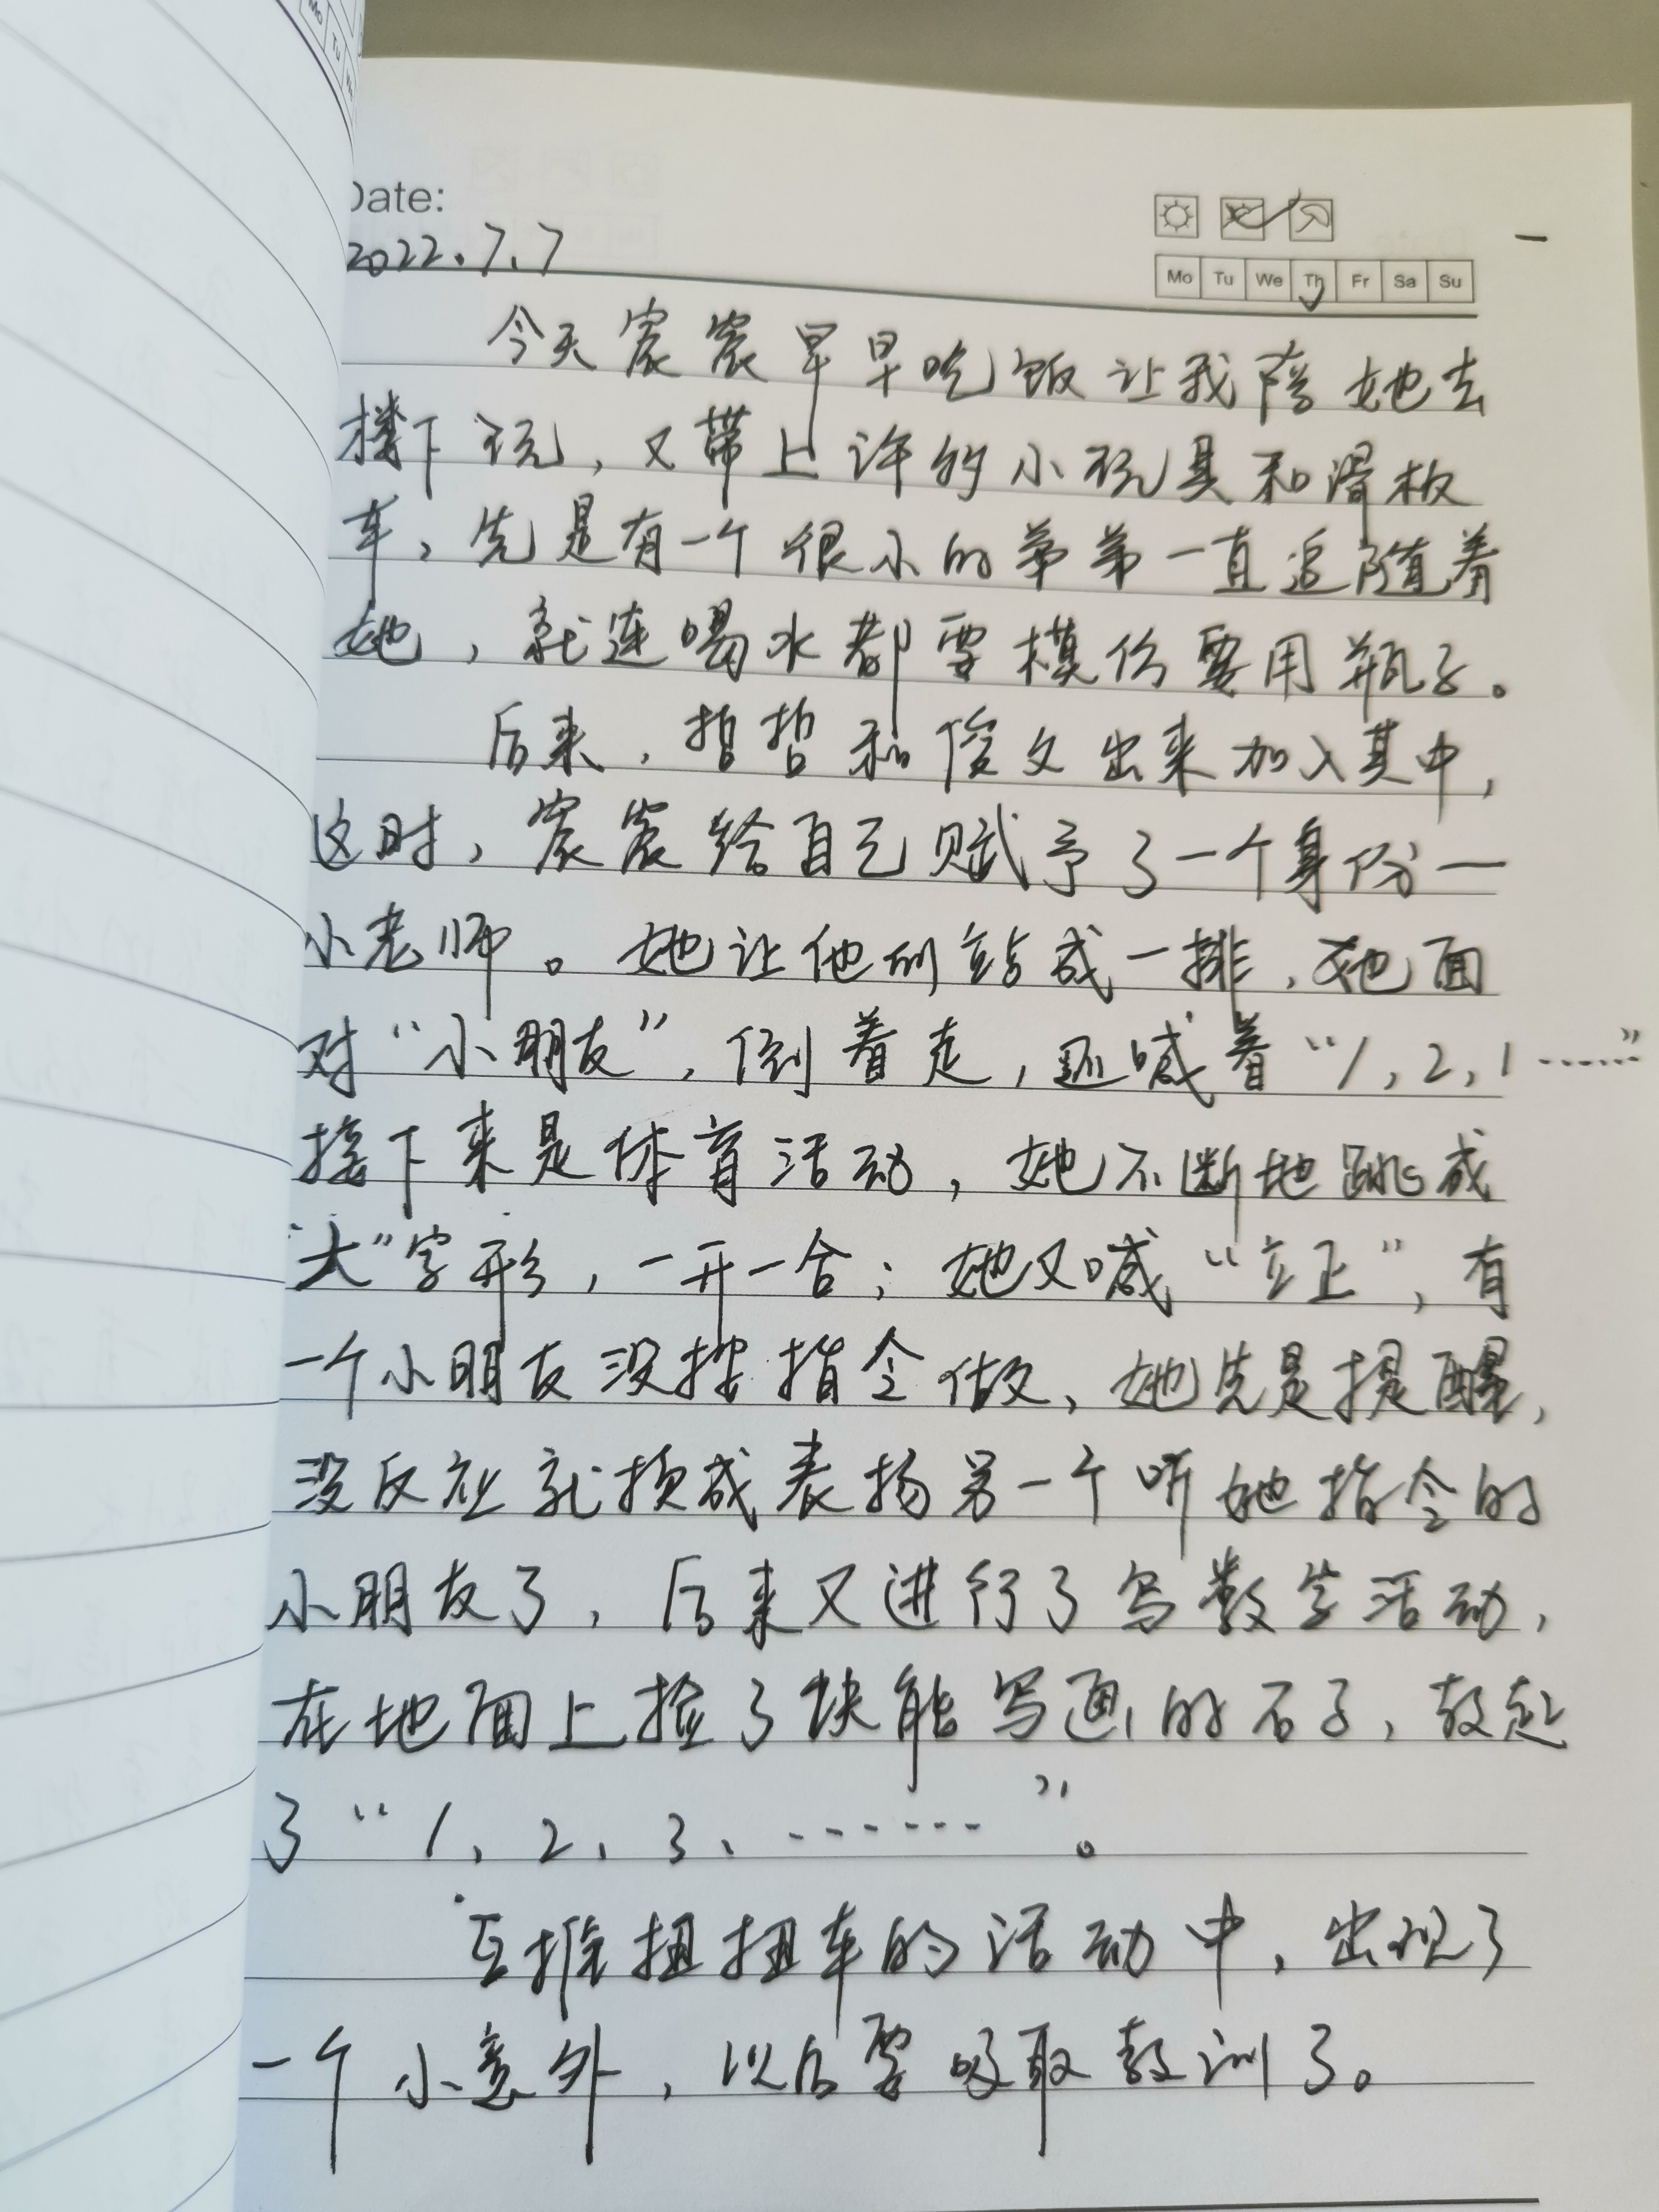 Date:
2022.7.7
Mo Tu We Th Fr Sa Su
今天宸宸早早吃饭让我陪她去
楼下玩，又带上许的小玩具和滑板
车，先是有一个很小的弟弟一直追随着
她，就连喝水都要模仿要用瓶子。
后来，哲哲和俊文出来加入其中，
这时，宸宸给自己赋予了一个身份一
小老师。她让他们站成一排，她面
对“小朋友”，倒着走，还喊着“1，2，1……”
接下来是体育活动，她不断地跳成
“大”字形，一开一合；她又喊“立正”，有
一个小朋友没按指令做，她先是提醒，
没反应就换成表扬另一个听她指令的
小朋友了，后来又进行了写数字活动，
在地面上捡了块能写画的石子，教起
了“1、2、3、……”。
互推扭扭车的活动中，出现了
一个小意外，以后要吸取教训了。